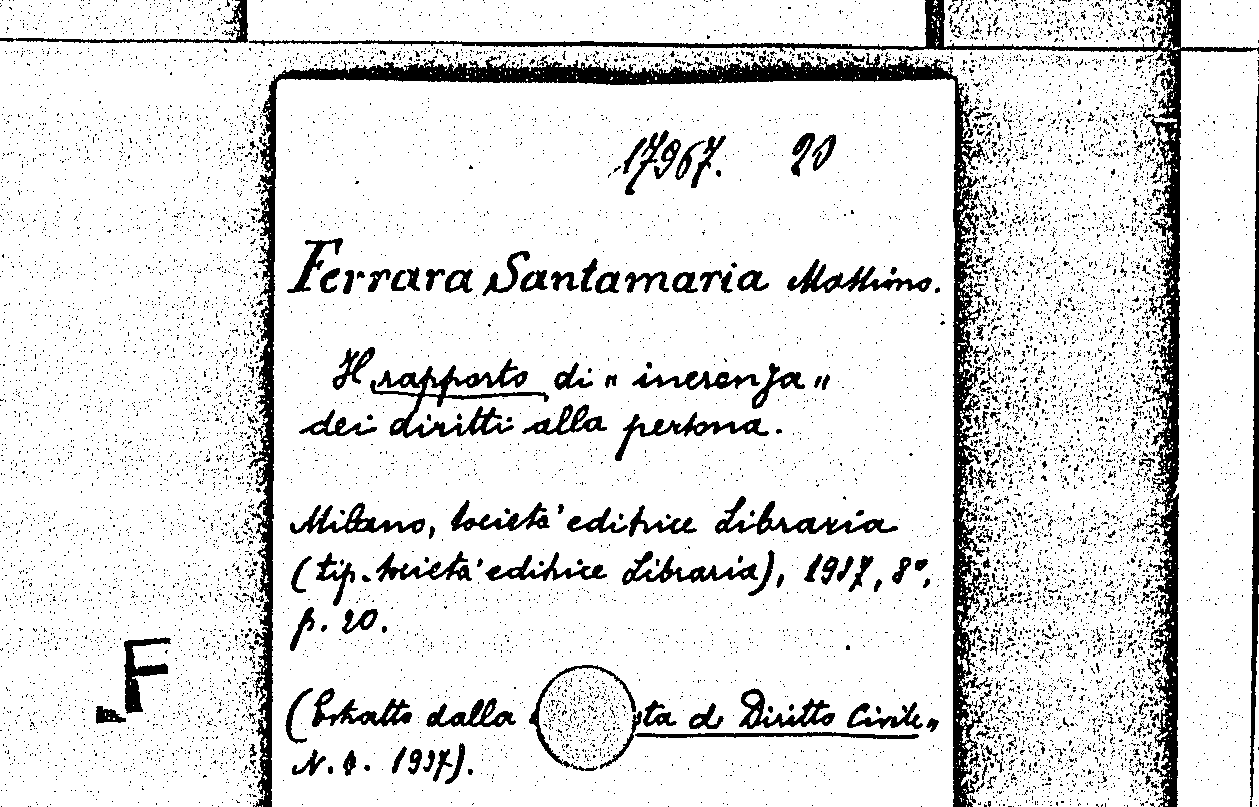 17967. 20
Ferrara Santamaria Massimo.
Il rapporto di "inerenza"
dei diritti alla persona.
Milano, Società editrice Libraria
(tip. Società editrice Libraria), 1937, 8°,
p. 20.
F
(Estratto dalla sta di Diritto Civile"
N. 1937).